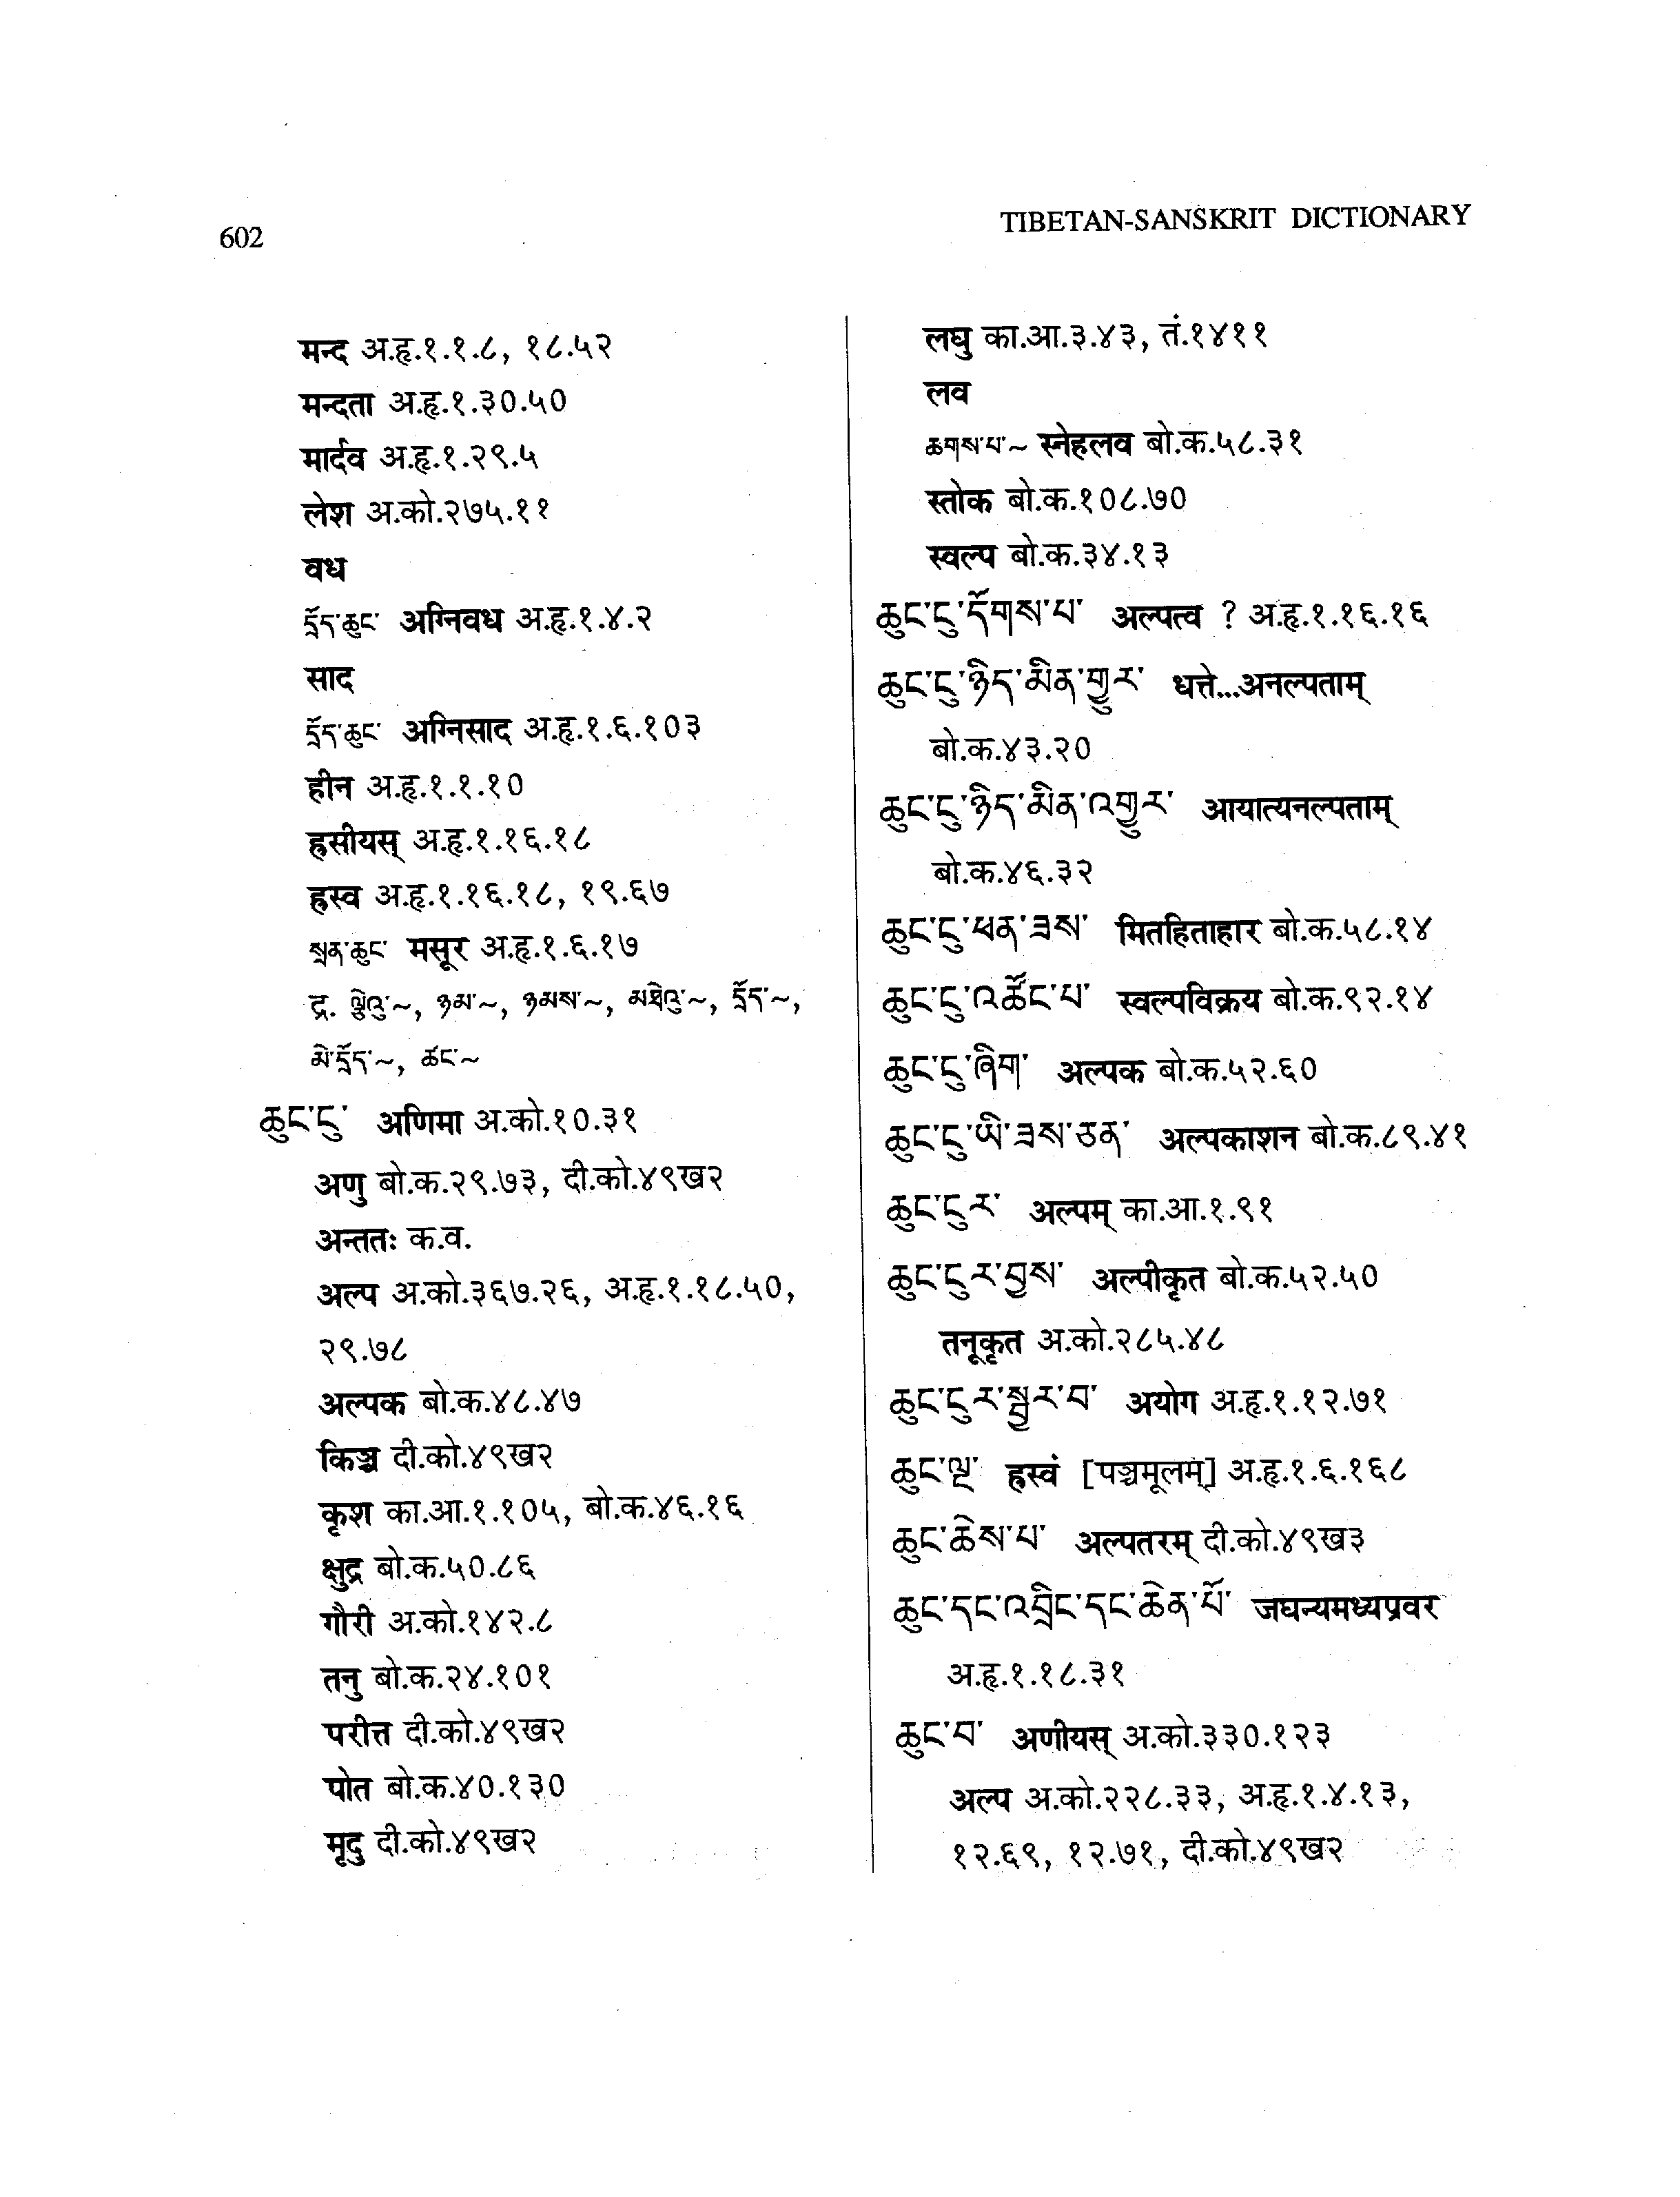 602
TIBETAN-SANSKRIT DICTIONARY
मन्द अ.हृ.१.१.८, १८.५२
मन्दता अ.हृ.१.३०.५०
मार्दव अ.हृ.१.२९.५
लेश अ.को.२७५.११
वध
དྲོད་ཆུང་ अग्निवध अ.हृ.१.४.२
साद
དྲོད་ཆུང་ अग्निसाद अ.हृ.१.६.१०३
हीन अ.हृ.१.१.१०
ह्रसीयस् अ.हृ.१.१६.१८
ह्रस्व अ.हृ.१.१६.१८, १९.६७
སྲན་ཆུང་ मसूर अ.हृ.१.६.१७
द्र. ལྕེའུ་~, ཉམ་~, ཉམས་~, མཐེའུ་~, དྲོད་~,
མེ་དྲོད་~, ཚང་~
ཆུང་ངུ་ अणिमा अ.को.१०.३१
अणु बो.क.२९.७३, दी.को.४९ख२
अन्ततः क.व.
अल्प अ.को.३६७.२६, अ.हृ.१.१८.५०,
२९.७८
अल्पक बो.क.४८.४७
किञ्च दी.को.४९ख२
कृश का.आ.१.१०५, बो.क.४६.१६
क्षुद्र बो.क.५०.८६
गौरी अ.को.१४२.८
तनु बो.क.२४.१०१
परीत्त दी.को.४९ख२
पोत बो.क.४०.१३०
मृदु दी.को.४९ख२
लघु का.आ.३.४३, तं.१४११
लव
ཆགས་པ་~ स्नेहलव बो.क.५८.३१
स्तोक बो.क.१०८.७०
स्वल्प बो.क.३४.१३
ཆུང་ངུ་དོགས་པ་ अल्पत्व ? अ.हृ.१.१६.१६
ཆུང་ངུ་ཉིད་མིན་གྱུར་ धत्ते...अनल्पताम्
बो.क.४३.२०
ཆུང་ངུ་ཉིད་མིན་འགྱུར་ आयात्यनल्पताम्
बो.क.४६.३२
ཆུང་ངུ་ཕན་ཟས་ मितहिताहार बो.क.५८.१४
ཆུང་ངུ་འཚོང་པ་ स्वल्पविक्रय बो.क.९२.१४
ཆུང་ངུ་ཞིག་ अल्पक बो.क.५२.६०
ཆུང་ངུ་ཡི་ཟས་ཅན་ अल्पकाशन बो.क.८९.४१
ཆུང་ངུར་ अल्पम् का.आ.१.९१
ཆུང་ངུར་བྱས་ अल्पीकृत बो.क.५२.५०
तनूकृत अ.को.२८५.४८
ཆུང་ངུར་སྦྱར་བ་ अयोग अ.हृ.१.१२.७१
ཆུང་ལྔ་ ह्रस्वं [पञ्चमूलम्] अ.हृ.१.६.१६८
ཆུང་ཆེས་པ་ अल्पतरम् दी.को.४९ख३
ཆུང་དང་འབྲིང་དང་ཆེན་པོ་ जघन्यमध्यप्रवर
अ.हृ.१.१८.३१
ཆུང་བ་ अणीयस् अ.को.३३०.१२३
अल्प अ.को.२२८.३३, अ.हृ.१.४.१३,
१२.६९, १२.७१, दी.को.४९ख२